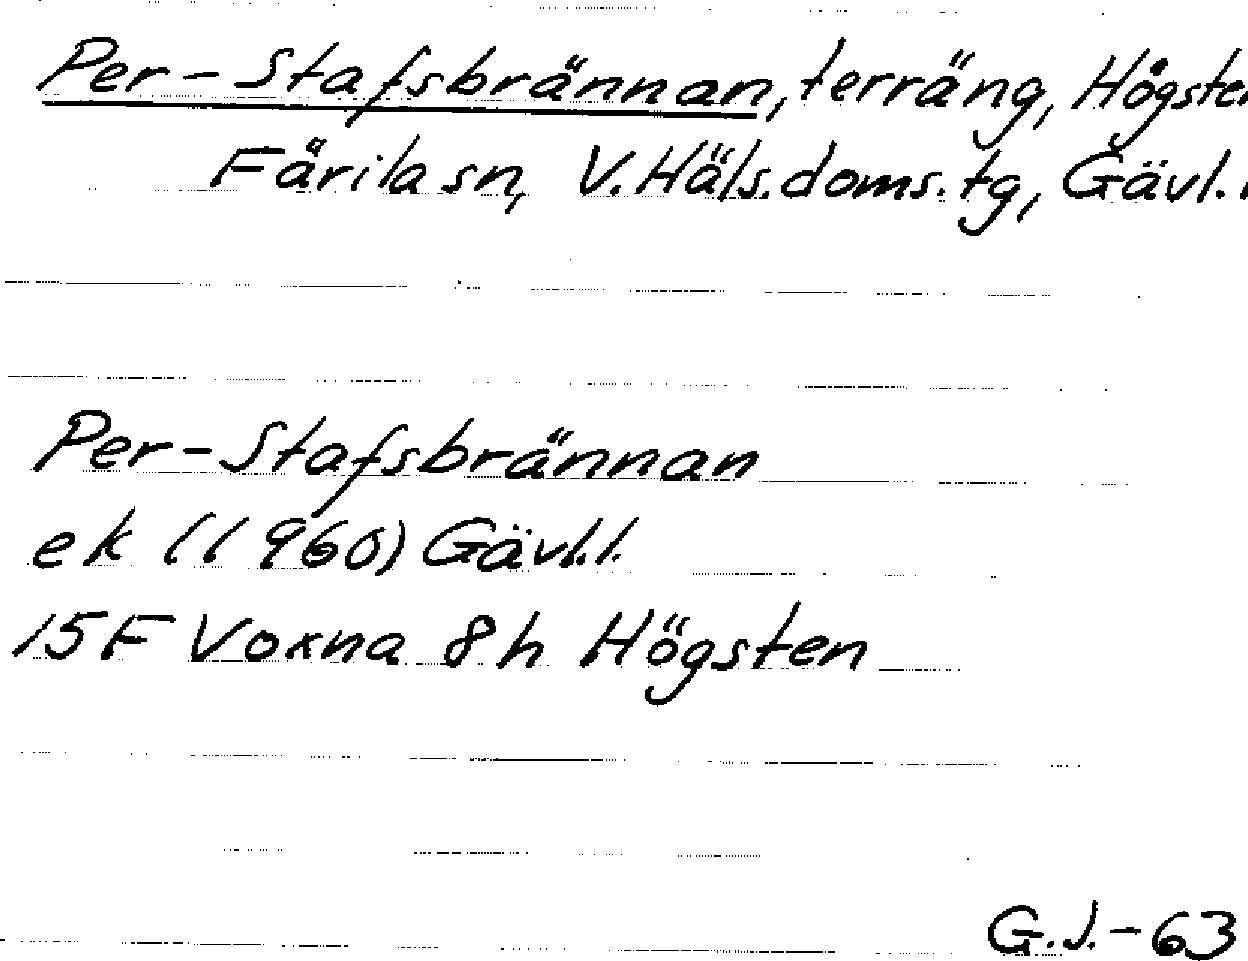 Per-Stafsbrännan, terräng, Högsten
Färila sn, V. Häls. doms. tg, Gävl. l
Per-Stafsbrännan
ek (1960) Gävl.l.
15F Voxna 8h Högsten
G.J.-63